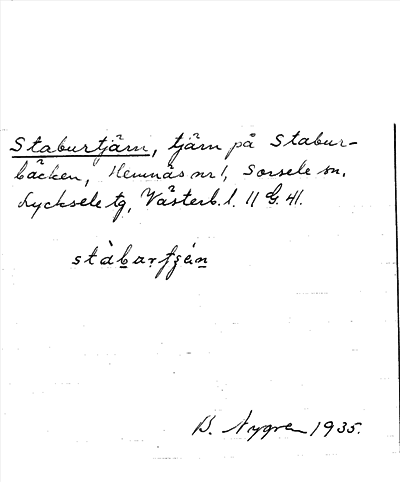 Staburtjärn, tjärn på Stabur-
bäcken, Hemnäs nr 1, Sorsele sn.
Lycksele tg, Västerb. l. 11 G. 41.
stàbarfjén
B. Nygren 1935.